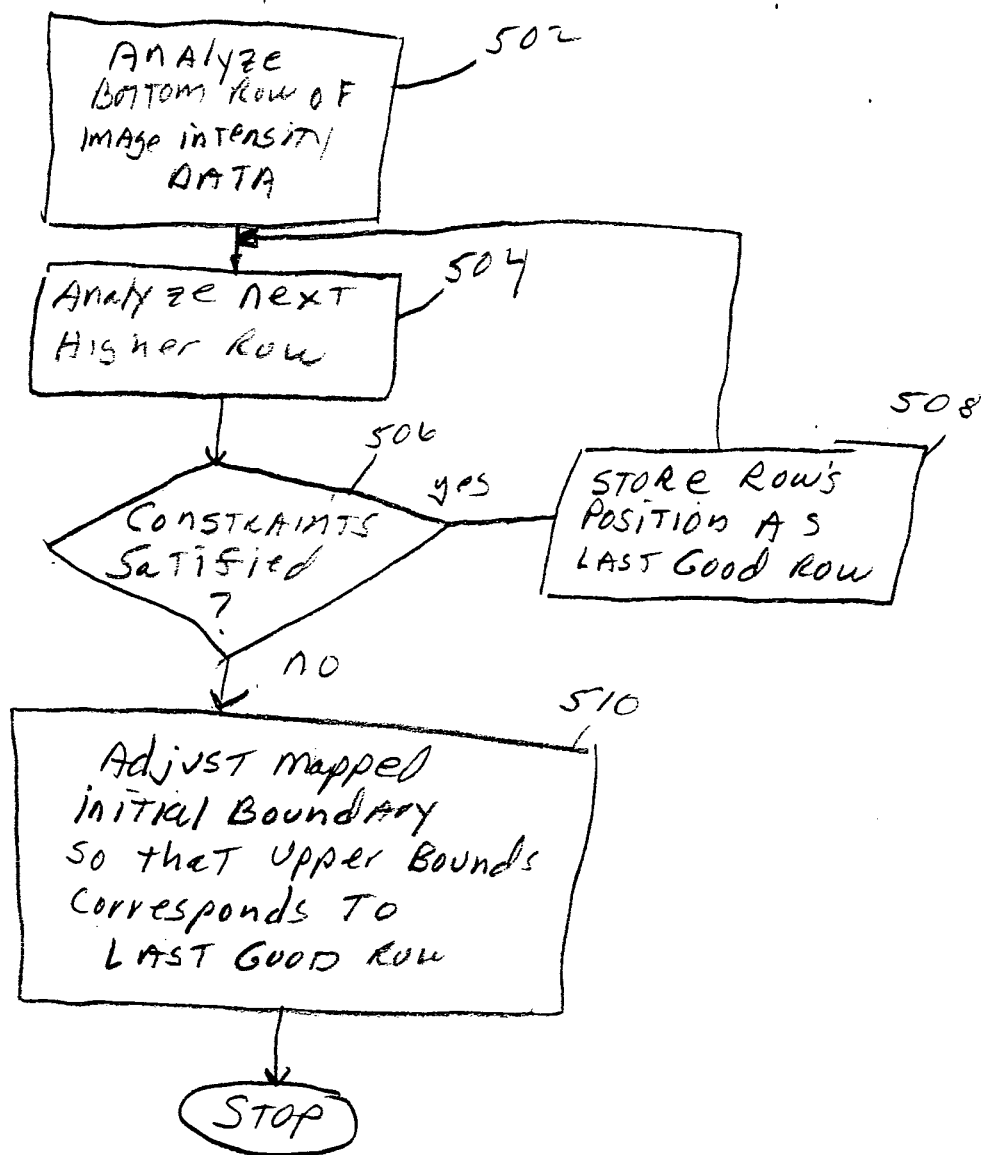 502
Analyze
Bottom Row of
Image intensity
DATA
504
Analyze next
Higher Row
506
Constraints
Satified
?
yes
508
STORE ROW'S
POSITION AS
LAST Good Row
no
510
Adjust mapped
initial Boundary
so that upper Bounds
Corresponds To
LAST GOOD ROW
STOP